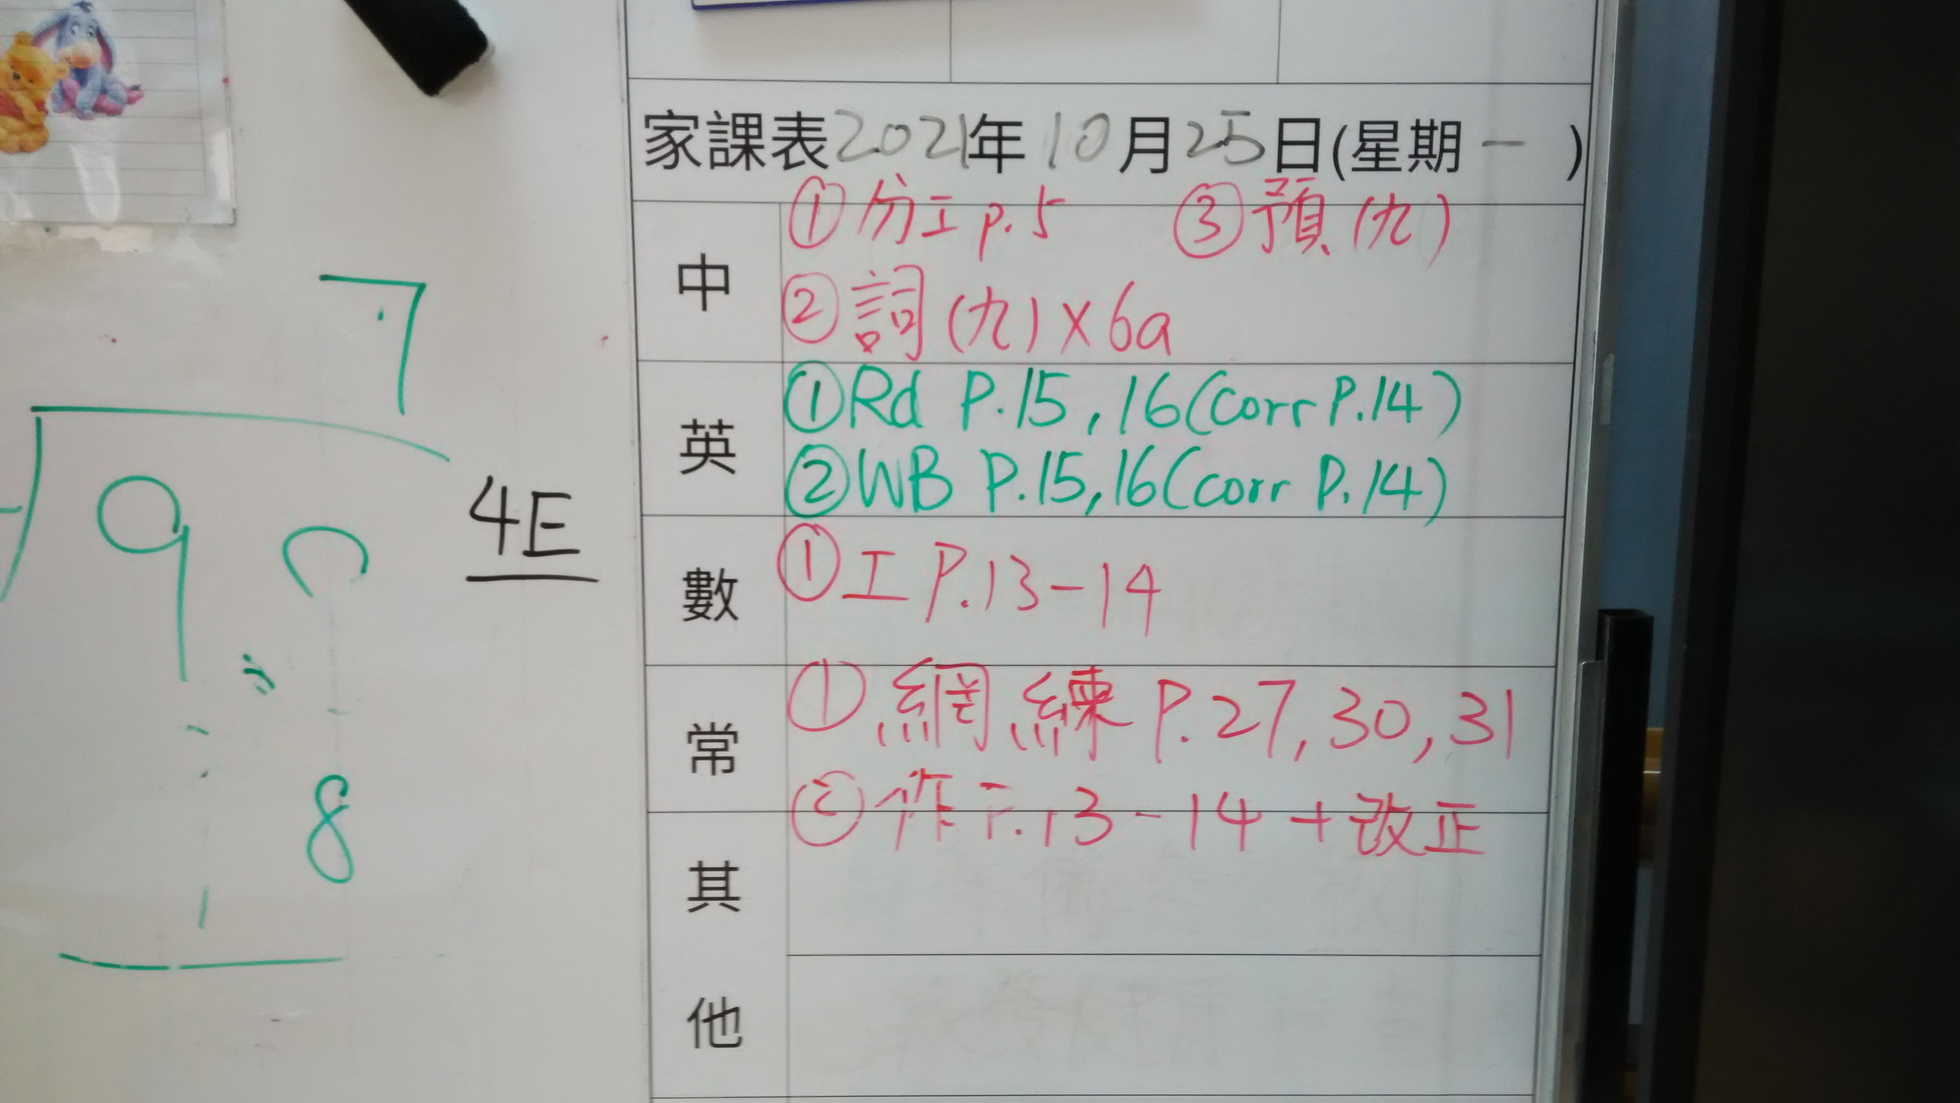 家課表2021年10月25日(星期一)
中
①份工p.5 ③預(九)
②詞(九)x6a
英
①Rd P.15,16(corr P.14)
②WB P.15,16(corr P.14)
數
①工P.13-14
常
①網練P.27,30,31
②作P.13-14+改正
其
他
4E
7
9
8